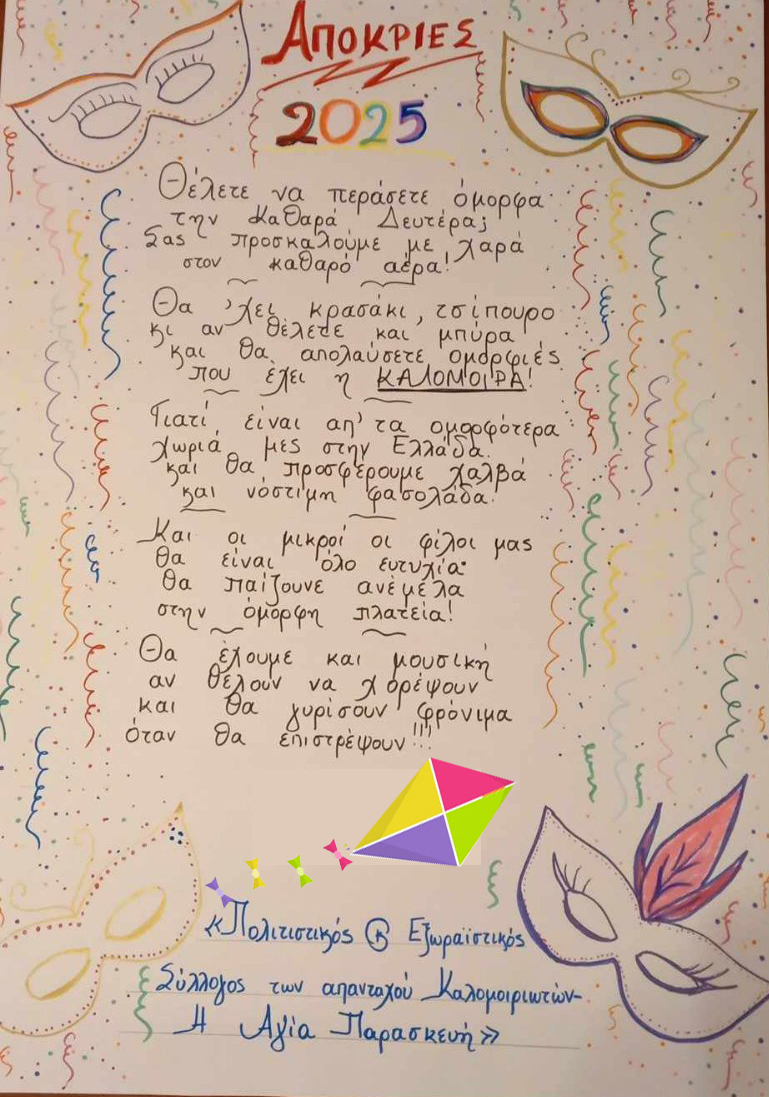 ΑΠΟΚΡΙΕΣ
2025
Θέλετε να περάσετε όμορφα
την Καθαρά Δευτέρα;
Σας προσκαλούμε με χαρά
στον καθαρό αέρα!
Θα 'χει κρασάκι, τσίπουρο
κι αν θέλετε και μπύρα
και θα απολαύσετε ομορφιές
που έχει η ΚΑΛΟΜΟΙΡΑ!
Γιατί είναι απ' τα ομορφότερα
χωριά μες στην Ελλάδα.
και θα προσφέρουμε χαλβά
και νόστιμη φασολάδα.
Και οι μικροί οι φίλοι μας
θα είναι όλο ευτυχία.
θα παίζουνε ανέμελα
στην όμορφη πλατεία!
Θα έχουμε και μουσική
αν θέλουν να χορέψουν
και θα γυρίσουν φρόνιμα
όταν θα επιστρέψουν!!!
«Πολιτιστικός & Εξωραϊστικός
Σύλλογος των απανταχού Καλομοιριωτών-
Η Αγία Παρασκευή»